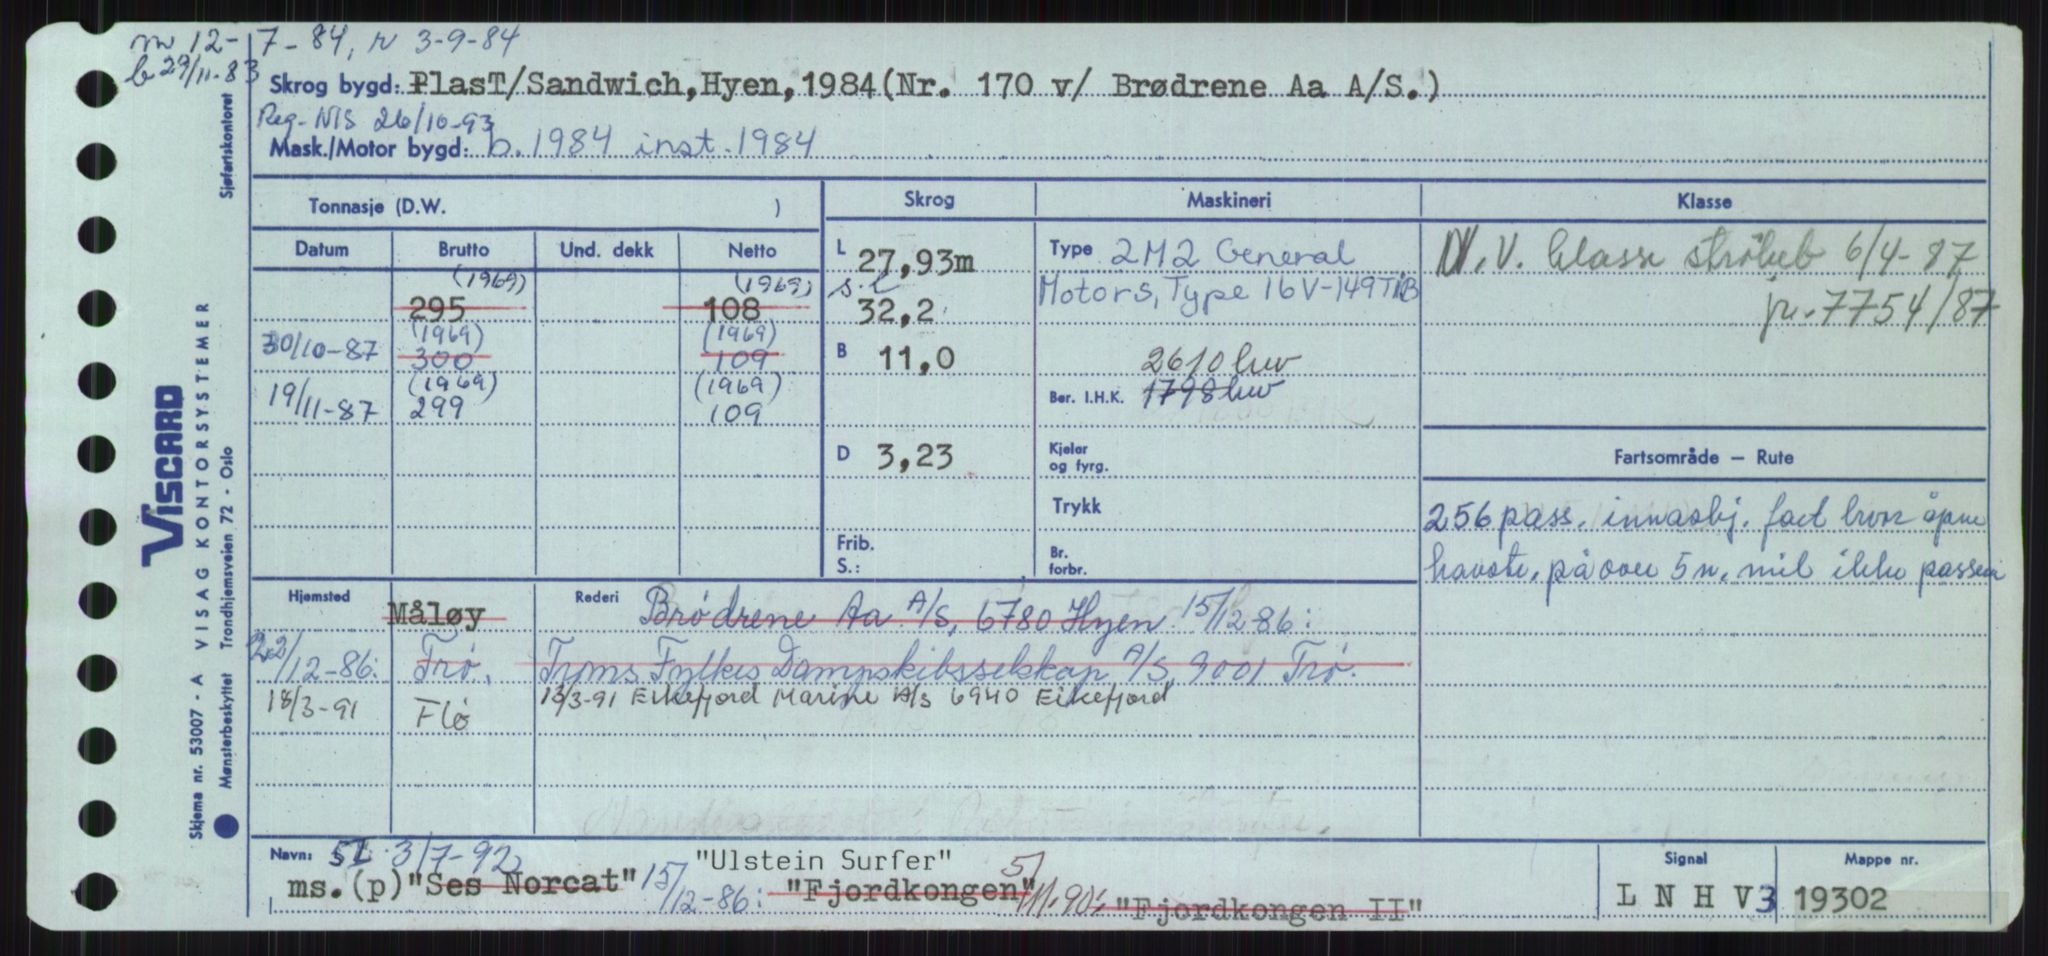 m 12-7-84, r 3-9-84
b 29/11-83
Skrog bygd: PlasT/Sandwich, Hyen, 1984 (Nr. 170 v/ Brødrene Aa A/S.)
Reg. NIS 26/10-93
Mask./Motor bygd: b. 1984 inst. 1984
Sjøfartskontoret
Tonnasje (D.W. )
Skrog
Maskineri
Klasse
Datum
Brutto
Und. dekk
Netto
L 27,93m
Type 2M2 General
N.V. klasse 6/4-87
(1969) (1969)
295 108
s.l
32,2
Motors, Type 16V-149TIB
jr. 7754/87
30/10-87 (1969) 300 (1969) 109
B 11,0
2610 kw
19/11-87 (1969) 299 (1969) 109
Ber. I.H.K. 1798 kw
D 3,23
Kjeler
og fyrg.
Fartsområde — Rute
Trykk
256 pass. innaskj. fart hvor åpne
Frib.
S.:
Br.
forbr.
havstr. på over 5 n. mil ikke passer
Hjemsted
Måløy
Rederi
Brødrene Aa A/S, 6780 Hyen. 15/12-86:
22/12-86: Trø. Troms Fylkes Dampskibsselskap A/S, 9001 Trø.
18/3-91 Flø 18/3-91 Eikefjord Marine A/S 6940 Eikefjord
Navn: 3/7-92 "Ulstein Surfer"
ms. (p) "Ses Norcat" 15/12-86: "Fjordkongen" 5/11-90: "Fjordkongen II"
Signal
LNHV3
Mappe nr.
19302
VISCARD
VISAG KONTORSYSTEMER
Skjema nr. 53007 - A
Mønsterbeskyttet
Trondhjemsveien 72 - Oslo